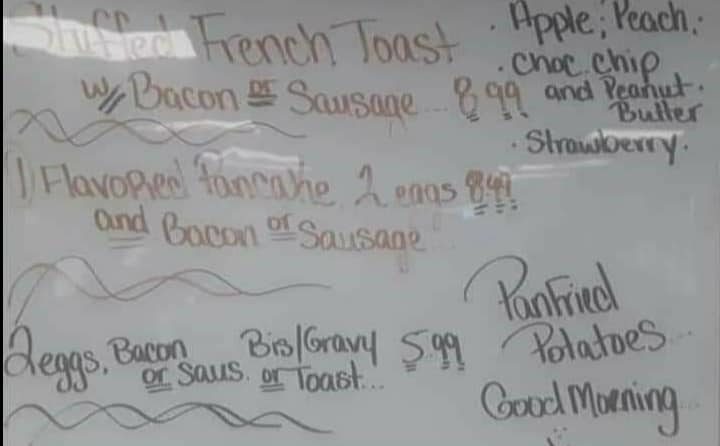 Stuffed French Toast
w/ Bacon or Sausage... 8.99
· Apple; Peach;
· choc. chip
and Peanut.
Butter
· Strawberry.
1) Flavored Pancake 2 eggs 8.49
and Bacon or Sausage
2 eggs, Bacon Bis/Gravy 5.99
or Saus. or Toast...
Panfried
Potatoes...
Good Morning...